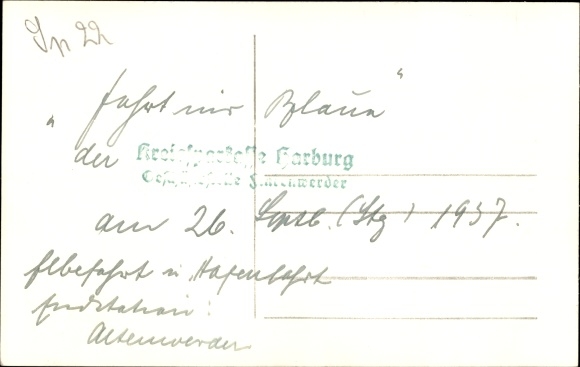 „Fahrt ins Blaue“
der Kreissparkasse Harburg
Geschäftsstelle Finkenwerder
am 26. Septb. (Stg) 1937.
Elbefahrt u. Hafenfahrt
Endstation:
Altenwerder